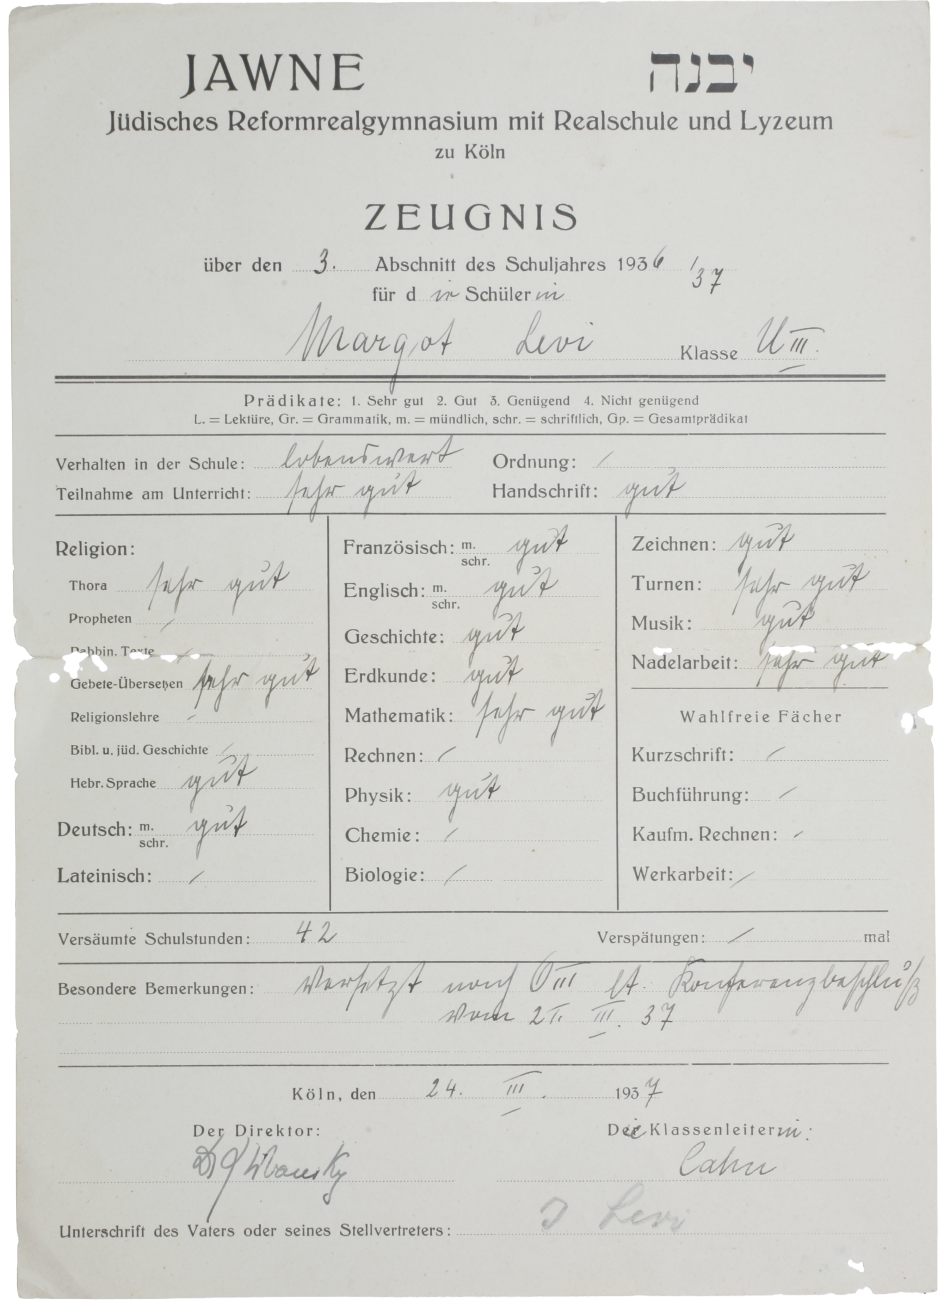 JAWNE יבנה
Jüdisches Reformrealgymnasium mit Realschule und Lyzeum
zu Köln
ZEUGNIS
über den 3. Abschnitt des Schuljahres 1936/37
für d ie Schüler in
Margot Levi Klasse U III.
Prädikate: 1. Sehr gut 2. Gut 3. Genügend 4. Nicht genügend
L. = Lektüre, Gr. = Grammatik, m. = mündlich, schr. = schriftlich, Gp. = Gesamtprädikat
Verhalten in der Schule: lobenswert Ordnung: /
Teilnahme am Unterricht: sehr gut Handschrift: gut
Religion:
Thora sehr gut
Propheten /
Rabbin. Texte /
Gebete-Übersetzen sehr gut
Religionslehre /
Bibl. u. jüd. Geschichte /
Hebr. Sprache gut
Deutsch: m. schr. gut
Lateinisch: /
Französisch: m. schr. gut
Englisch: m. schr. gut
Geschichte: gut
Erdkunde: gut
Mathematik: sehr gut
Rechnen: /
Physik: gut
Chemie: /
Biologie: /
Zeichnen: gut
Turnen: sehr gut
Musik: gut
Nadelarbeit: sehr gut
Wahlfreie Fächer
Kurzschrift: /
Buchführung: /
Kaufm. Rechnen: /
Werkarbeit: /
Versäumte Schulstunden: 42 Verspätungen: / mal
Besondere Bemerkungen: Versetzt nach O III lt. Konferenzbeschluß
vom III. 37
Köln, den 24. III. 1937
Der Direktor: Die Klassenleiterin:
Cahn
Unterschrift des Vaters oder seines Stellvertreters: J Levi